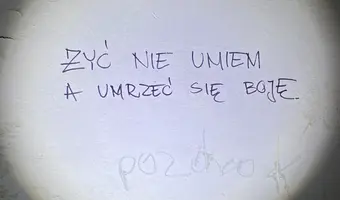 ŻYĆ NIE UMIEM
A UMRZEĆ SIĘ BOJĘ.